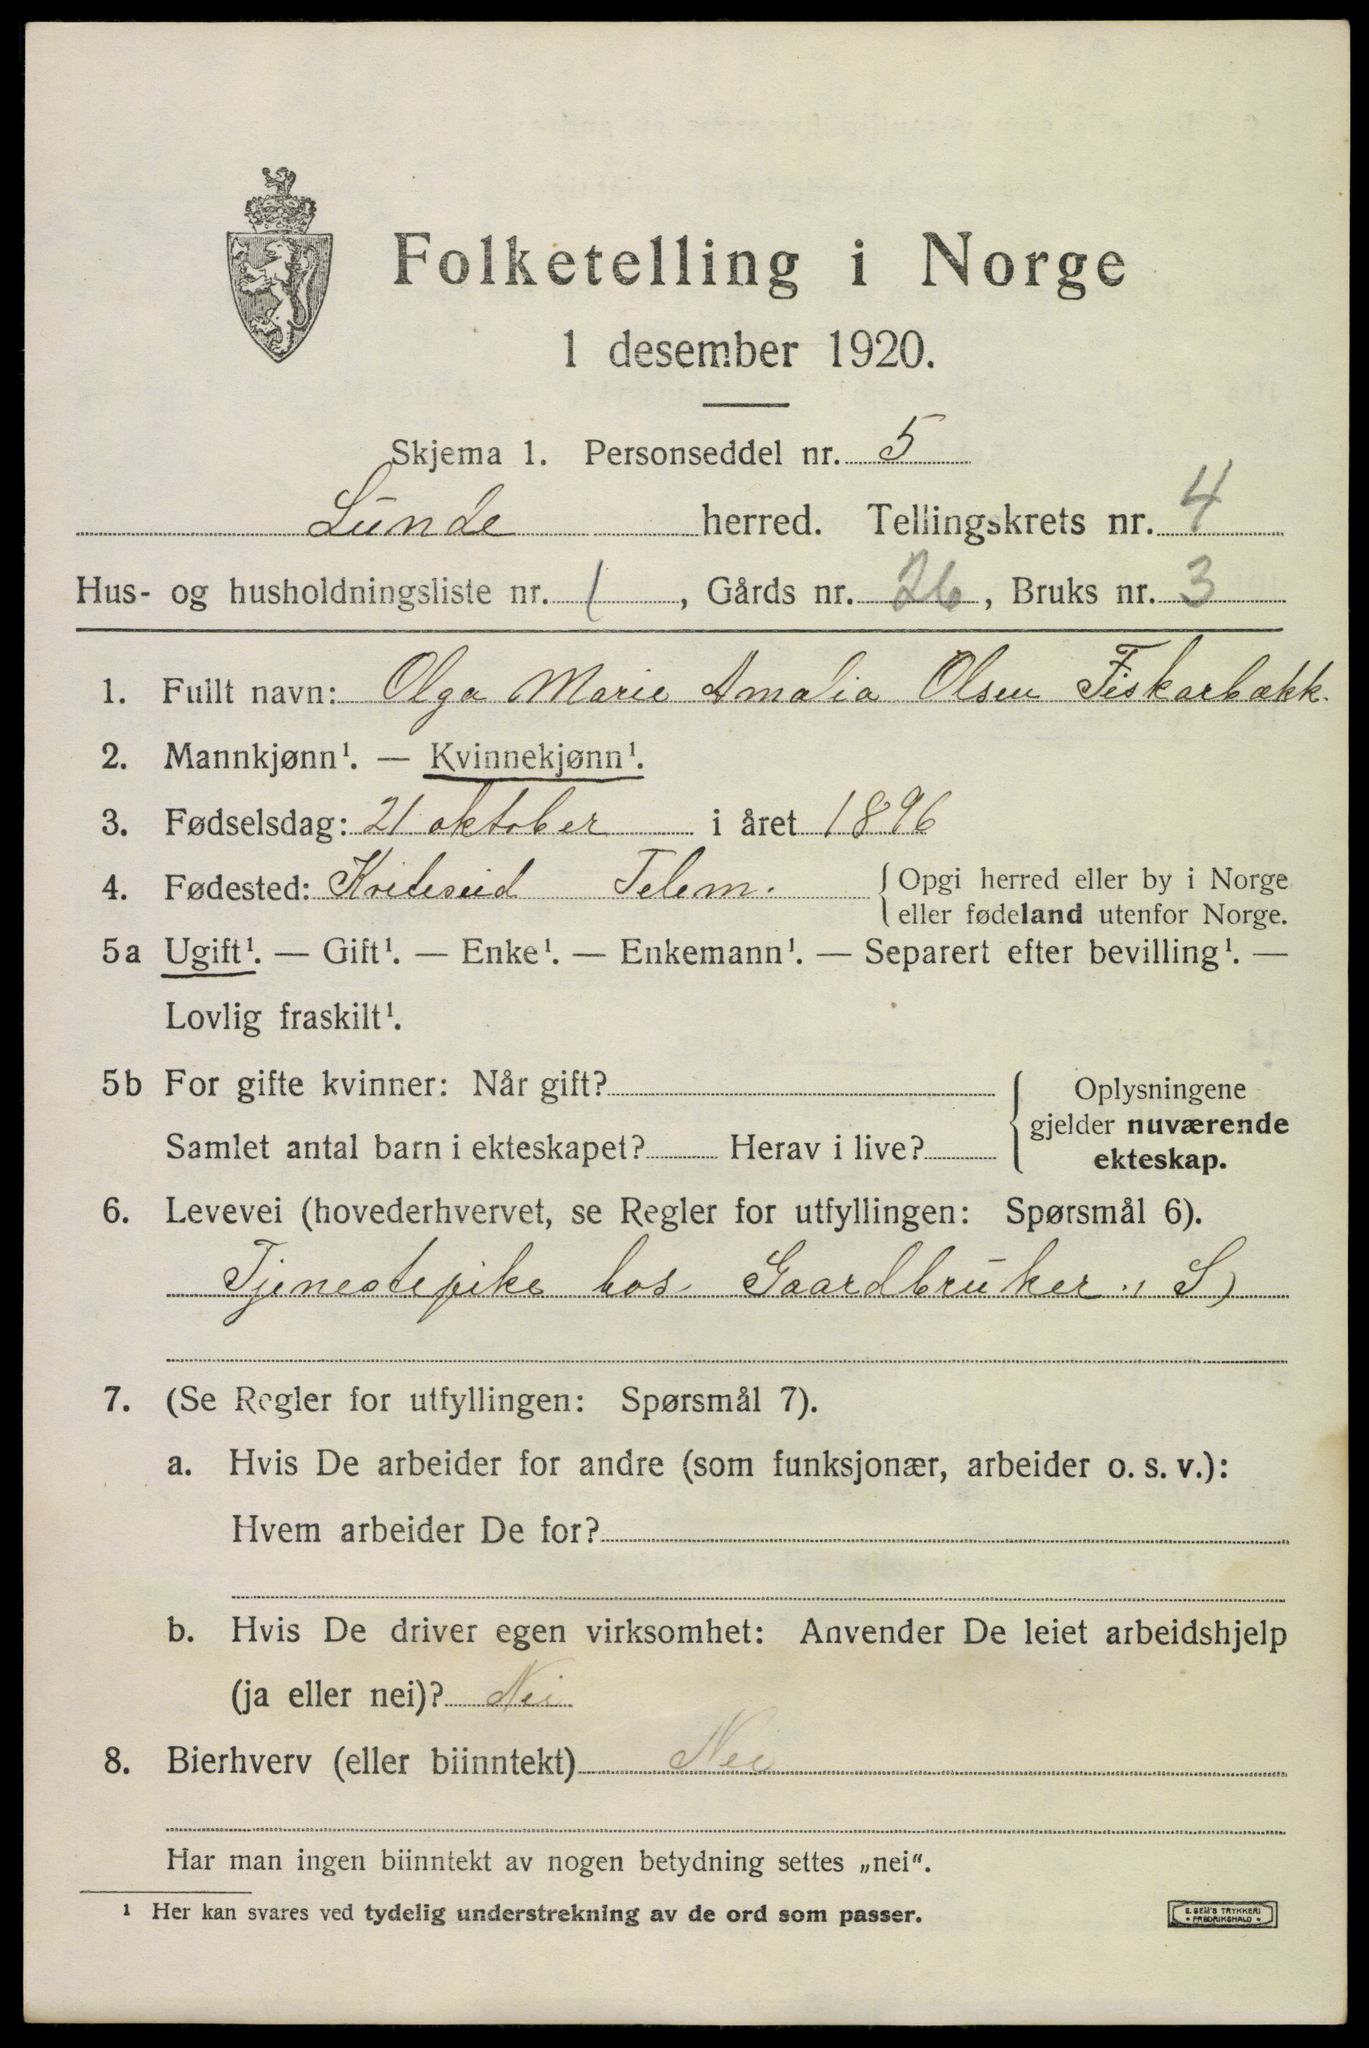 Folketelling i Norge
1 desember 1920.
Skjema 1. Personseddel nr. 5
Lunde herred. Tellingskrets nr. 4
Hus- og husholdningsliste nr. 1, Gårds nr. 26, Bruks nr. 3
1. Fullt navn: Olga Marie Amalia Olsen Fiskarbækk.
2. Mannkjønn¹. — Kvinnekjønn¹.
3. Fødselsdag: 21 oktober i året 1896
4. Fødested: Kviteseid Telem. { Opgi herred eller by i Norge
eller fødeland utenfor Norge.
5a Ugift¹. — Gift¹. — Enke¹. — Enkemann¹. — Separert efter bevilling¹. —
Lovlig fraskilt¹.
5b For gifte kvinner: Når gift?
Samlet antal barn i ekteskapet? Herav i live?
Oplysningene
gjelder nuværende
ekteskap.
6. Levevei (hovederhvervet, se Regler for utfyllingen: Spørsmål 6).
Tjenestepike hos Gaardbruker S)
7. (Se Regler for utfyllingen: Spørsmål 7).
a. Hvis De arbeider for andre (som funksjonær, arbeider o. s. v.):
Hvem arbeider De for?
b. Hvis De driver egen virksomhet: Anvender De leiet arbeidshjelp
(ja eller nei)? Nei
8. Bierhverv (eller biinntekt) Nei
Har man ingen biinntekt av nogen betydning settes „nei".
¹ Her kan svares ved tydelig understrekning av de ord som passer.
E. SEM'S TRYKKERI
• FREDRIKSHALD •